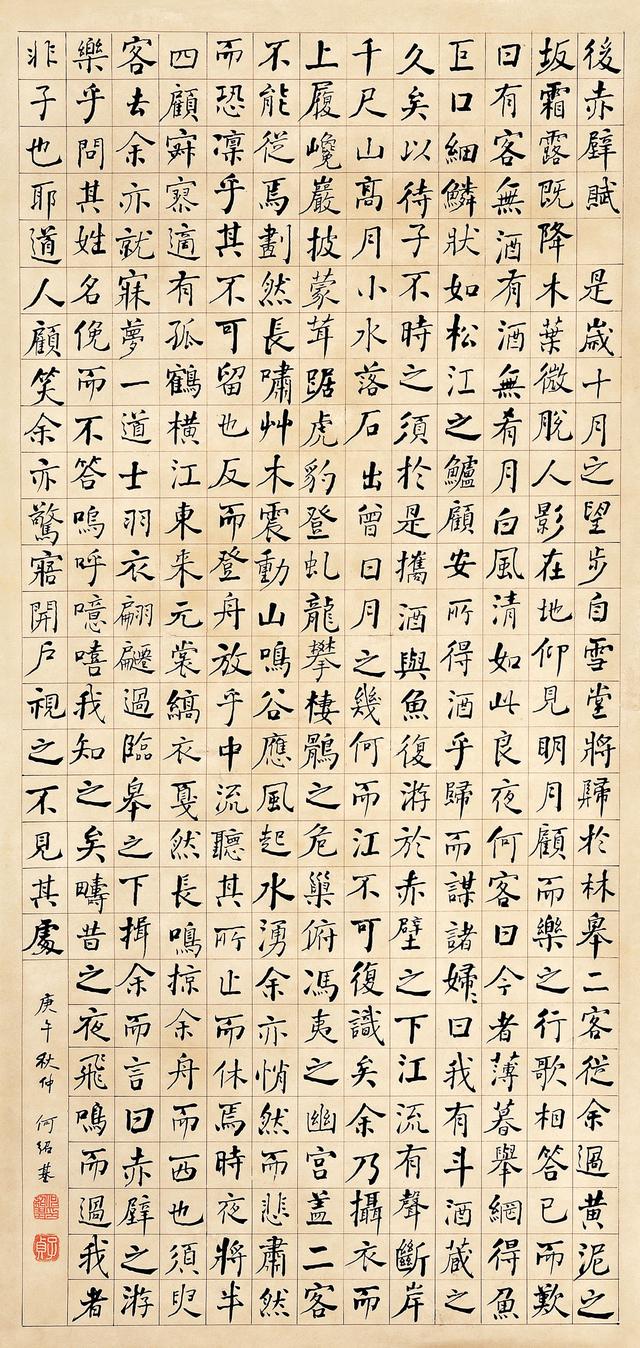 後赤壁賦 是歲十月之望步自雪堂將歸於林皋二客從余過黃泥之
坂霜露既降木葉微脫人影在地仰見明月顧而樂之行歌相答已而歎
曰有客無酒有酒無肴月白風清如此良夜何客曰今者薄暮舉網得魚
巨口細鱗狀如松江之鱸顧安所得酒乎歸而謀諸婦〻曰我有斗酒藏之
久矣以待子不時之須於是攜酒與魚復游於赤壁之下江流有聲斷岸
千尺山高月小水落石出曾日月之幾何而江不可復識矣余乃攝衣而
上履巉巖披蒙茸踞虎豹登虬龍攀棲鶻之危巢俯馮夷之幽宮蓋二客
不能從焉劃然長嘯艸木震動山鳴谷應風起水湧余亦悄然而悲肅然
而恐凜乎其不可留也反而登舟放乎中流聽其所止而休焉時夜將半
四顧寂寥適有孤鶴橫江東來元裳縞衣戛然長鳴掠余舟而西也須臾
客去余亦就寐夢一道士羽衣翩躚過臨皋之下揖余而言曰赤壁之游
樂乎問其姓名俛而不答嗚呼噫嘻我知之矣疇昔之夜飛鳴而過我者
非子也耶道人顧笑余亦驚寤開戶視之不見其處
庚午秋仲 何紹基
子貞